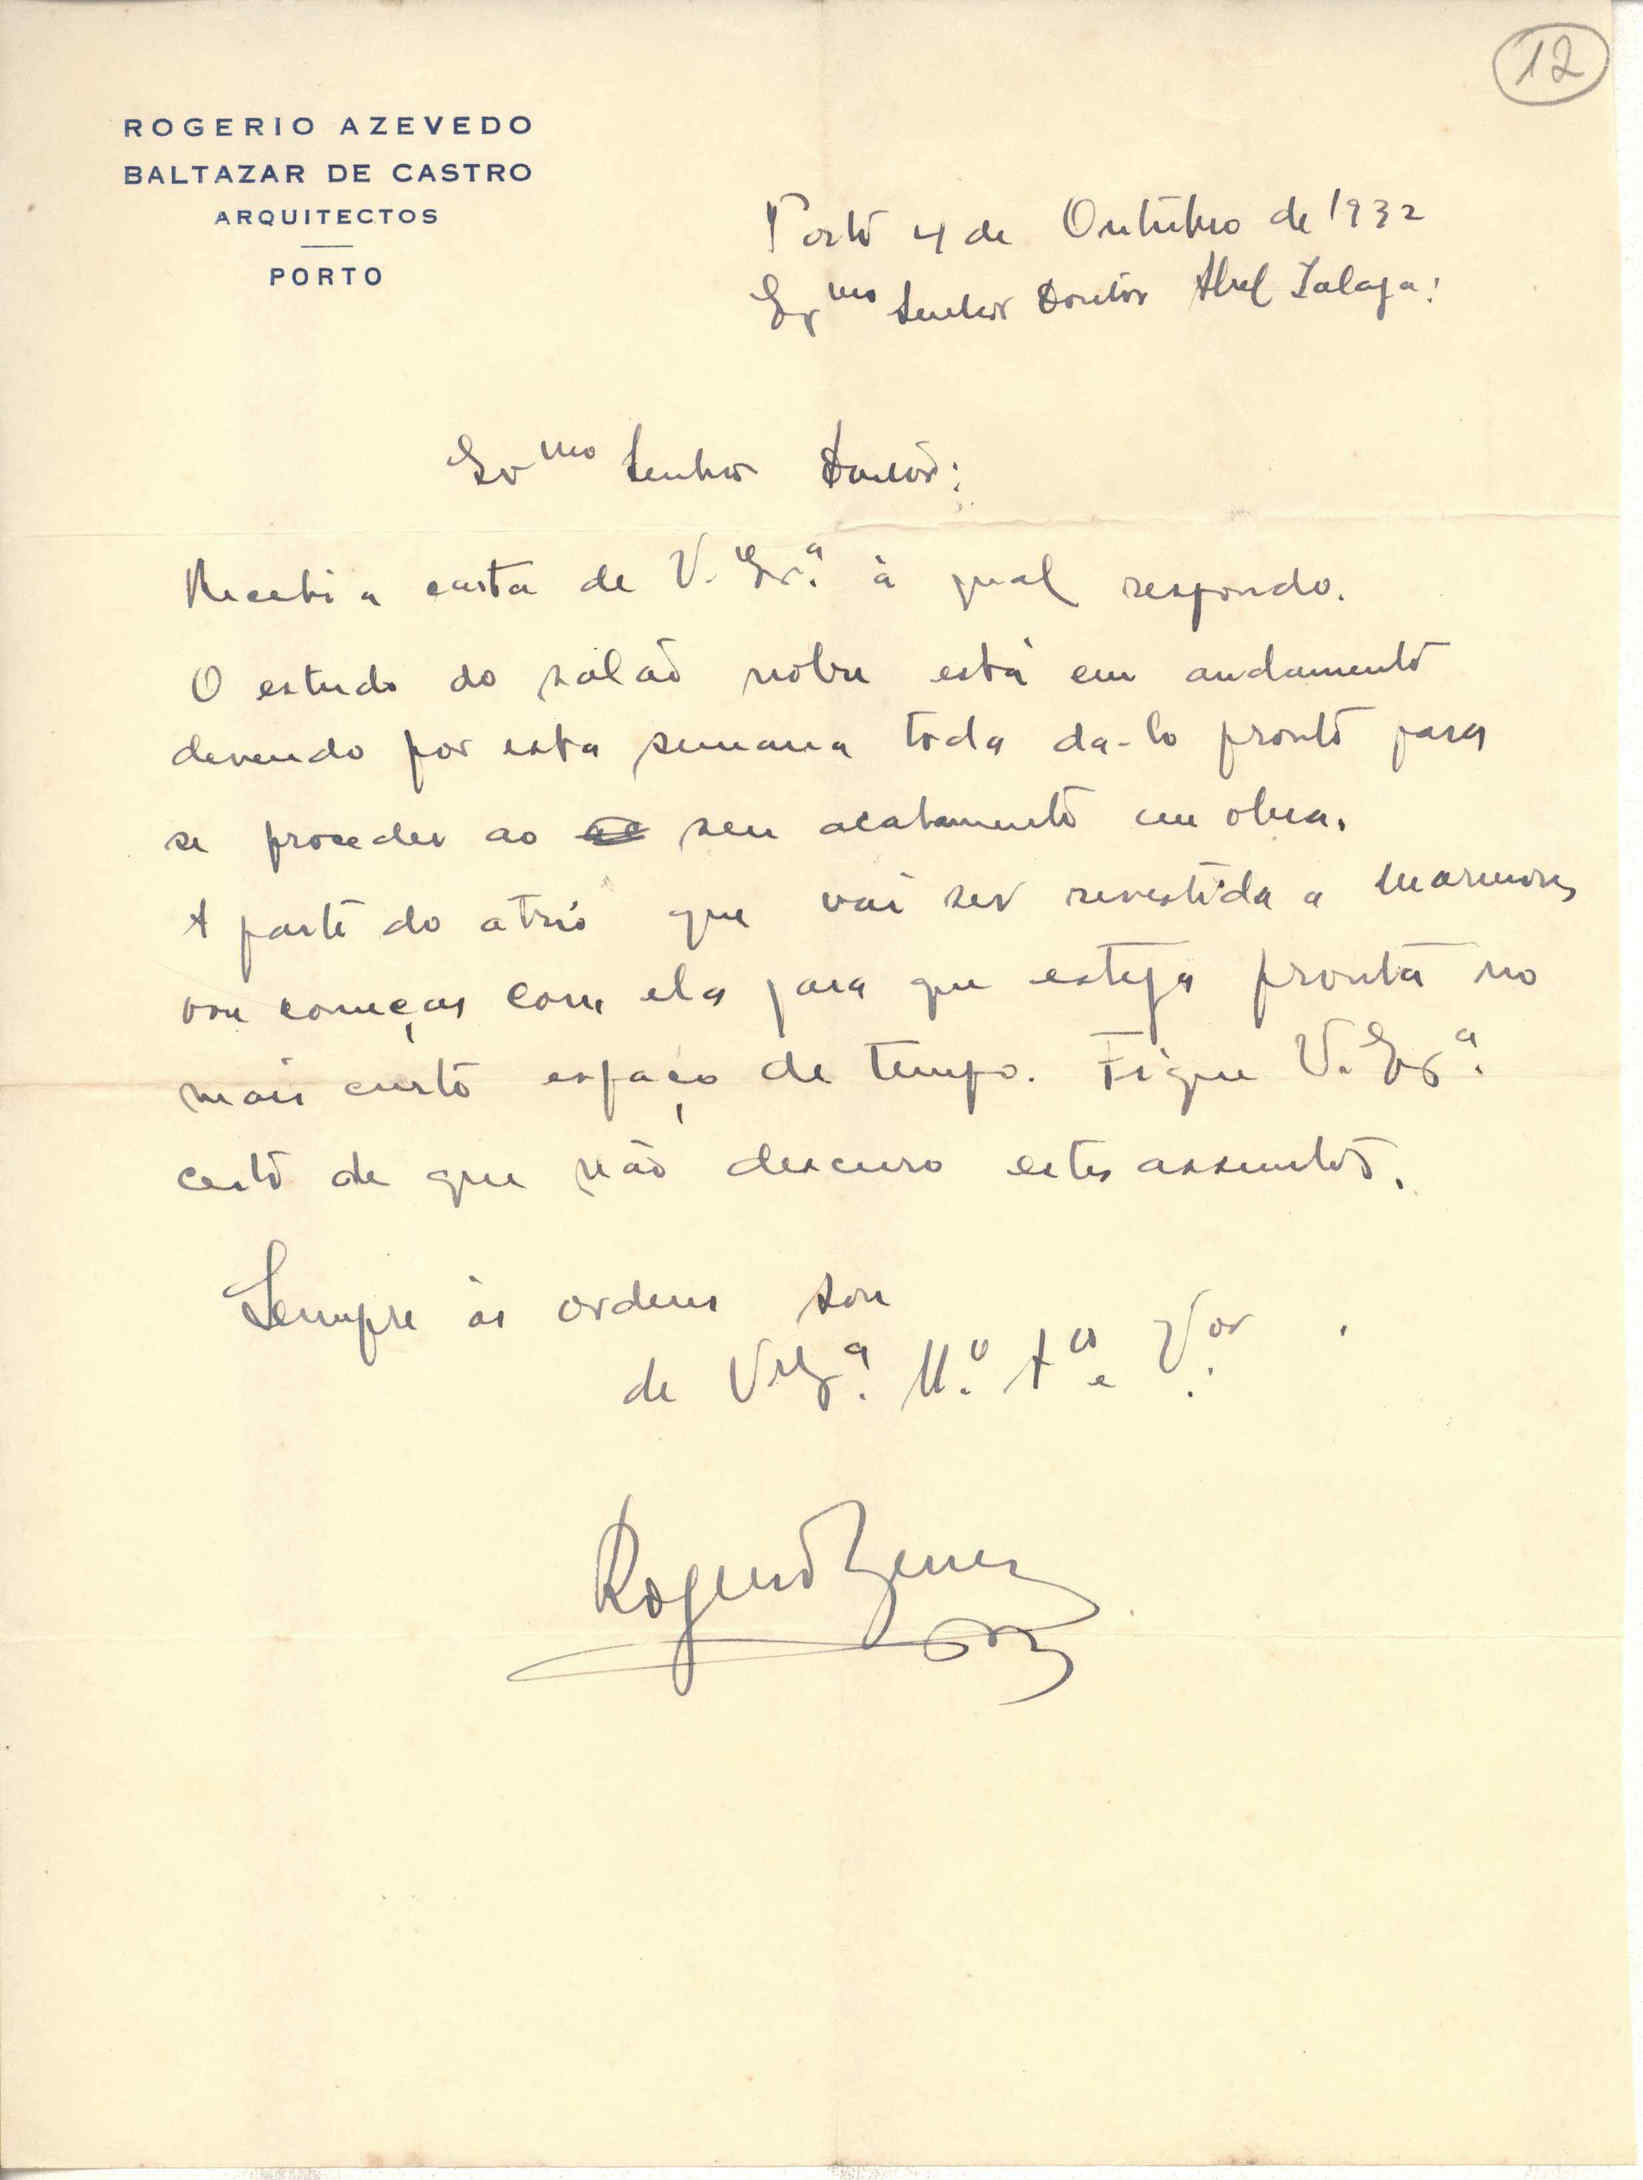 12
ROGERIO AZEVEDO
BALTAZAR DE CASTRO
ARQUITECTOS
PORTO
Porto 4 de Outubro de 1932
Exmo Senhor Doutor Abel Salazar:
Exmo Senhor Doutor:
Recebi a carta de V. Exª. à qual respondo.
O estudo do salão nobre está em andamento
devendo por esta semana toda da-lo pronto para
se proceder ao seu acabamento em obra.
A parte do atrio que vai ser revestida a marmores
vou começar com ela para que esteja pronta no
mais curto espaço de tempo. Fique V. Exª.
certo de que não descuro estes assuntos.
Sempre ás ordens sou
de V Exª. Mº. Aº e Vor.
Rogerio Azevedo